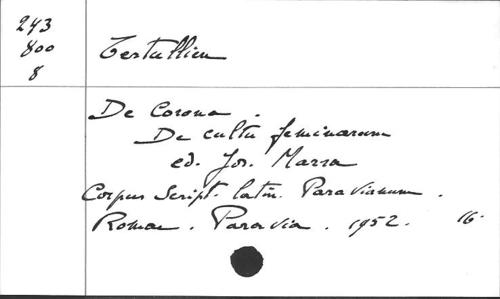 243
800
8
Tertullien
De Corona.
De cultu feminarum
ed. Jos. Marra
Corpus Script. latin. Paravianum.
Romae. Paravia. 1952. 16·